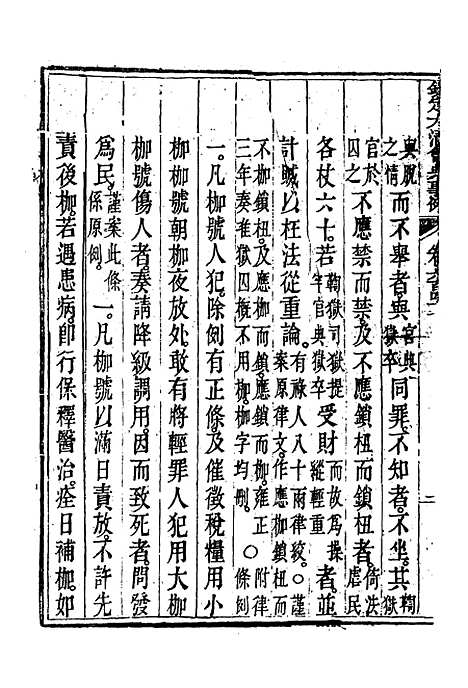 欽定大清會典事例 卷
與脫之情而不舉者與官典獄卒同罪不知者不坐其鞫獄
官於囚之不應禁而禁及不應鎖杻而鎖杻者倚法虐民
各杖六十若鞫獄司獄提牢官典獄卒受財而故為操縱輕重者並
計贓以枉法從重論有祿人八十兩律絞○謹案原律文作應枷鎖杻而
不枷鎖杻及不應枷而鎖應鎖而枷雍正三年奏准獄囚概不用枷枷字均刪○附律條例
一凡枷號人犯除例有正條及催徵稅糧用小
枷枷號朝枷夜放外敢有將輕罪人犯用大枷
枷號傷人者奏請降級調用因而致死者問發
為民謹案此條係原例一凡枷號以滿日責放不許先
責後枷若遇患病即行保釋醫治痊日補枷如